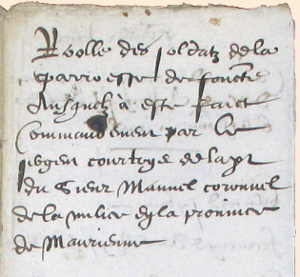 Roolle des soldatz de la
parroesse de foncte
Ausquelz à este faict
Commandement par le
sergen courtoys de la pt
du Sieur Manuel coronnel
de la milice en la province
de Maurienne